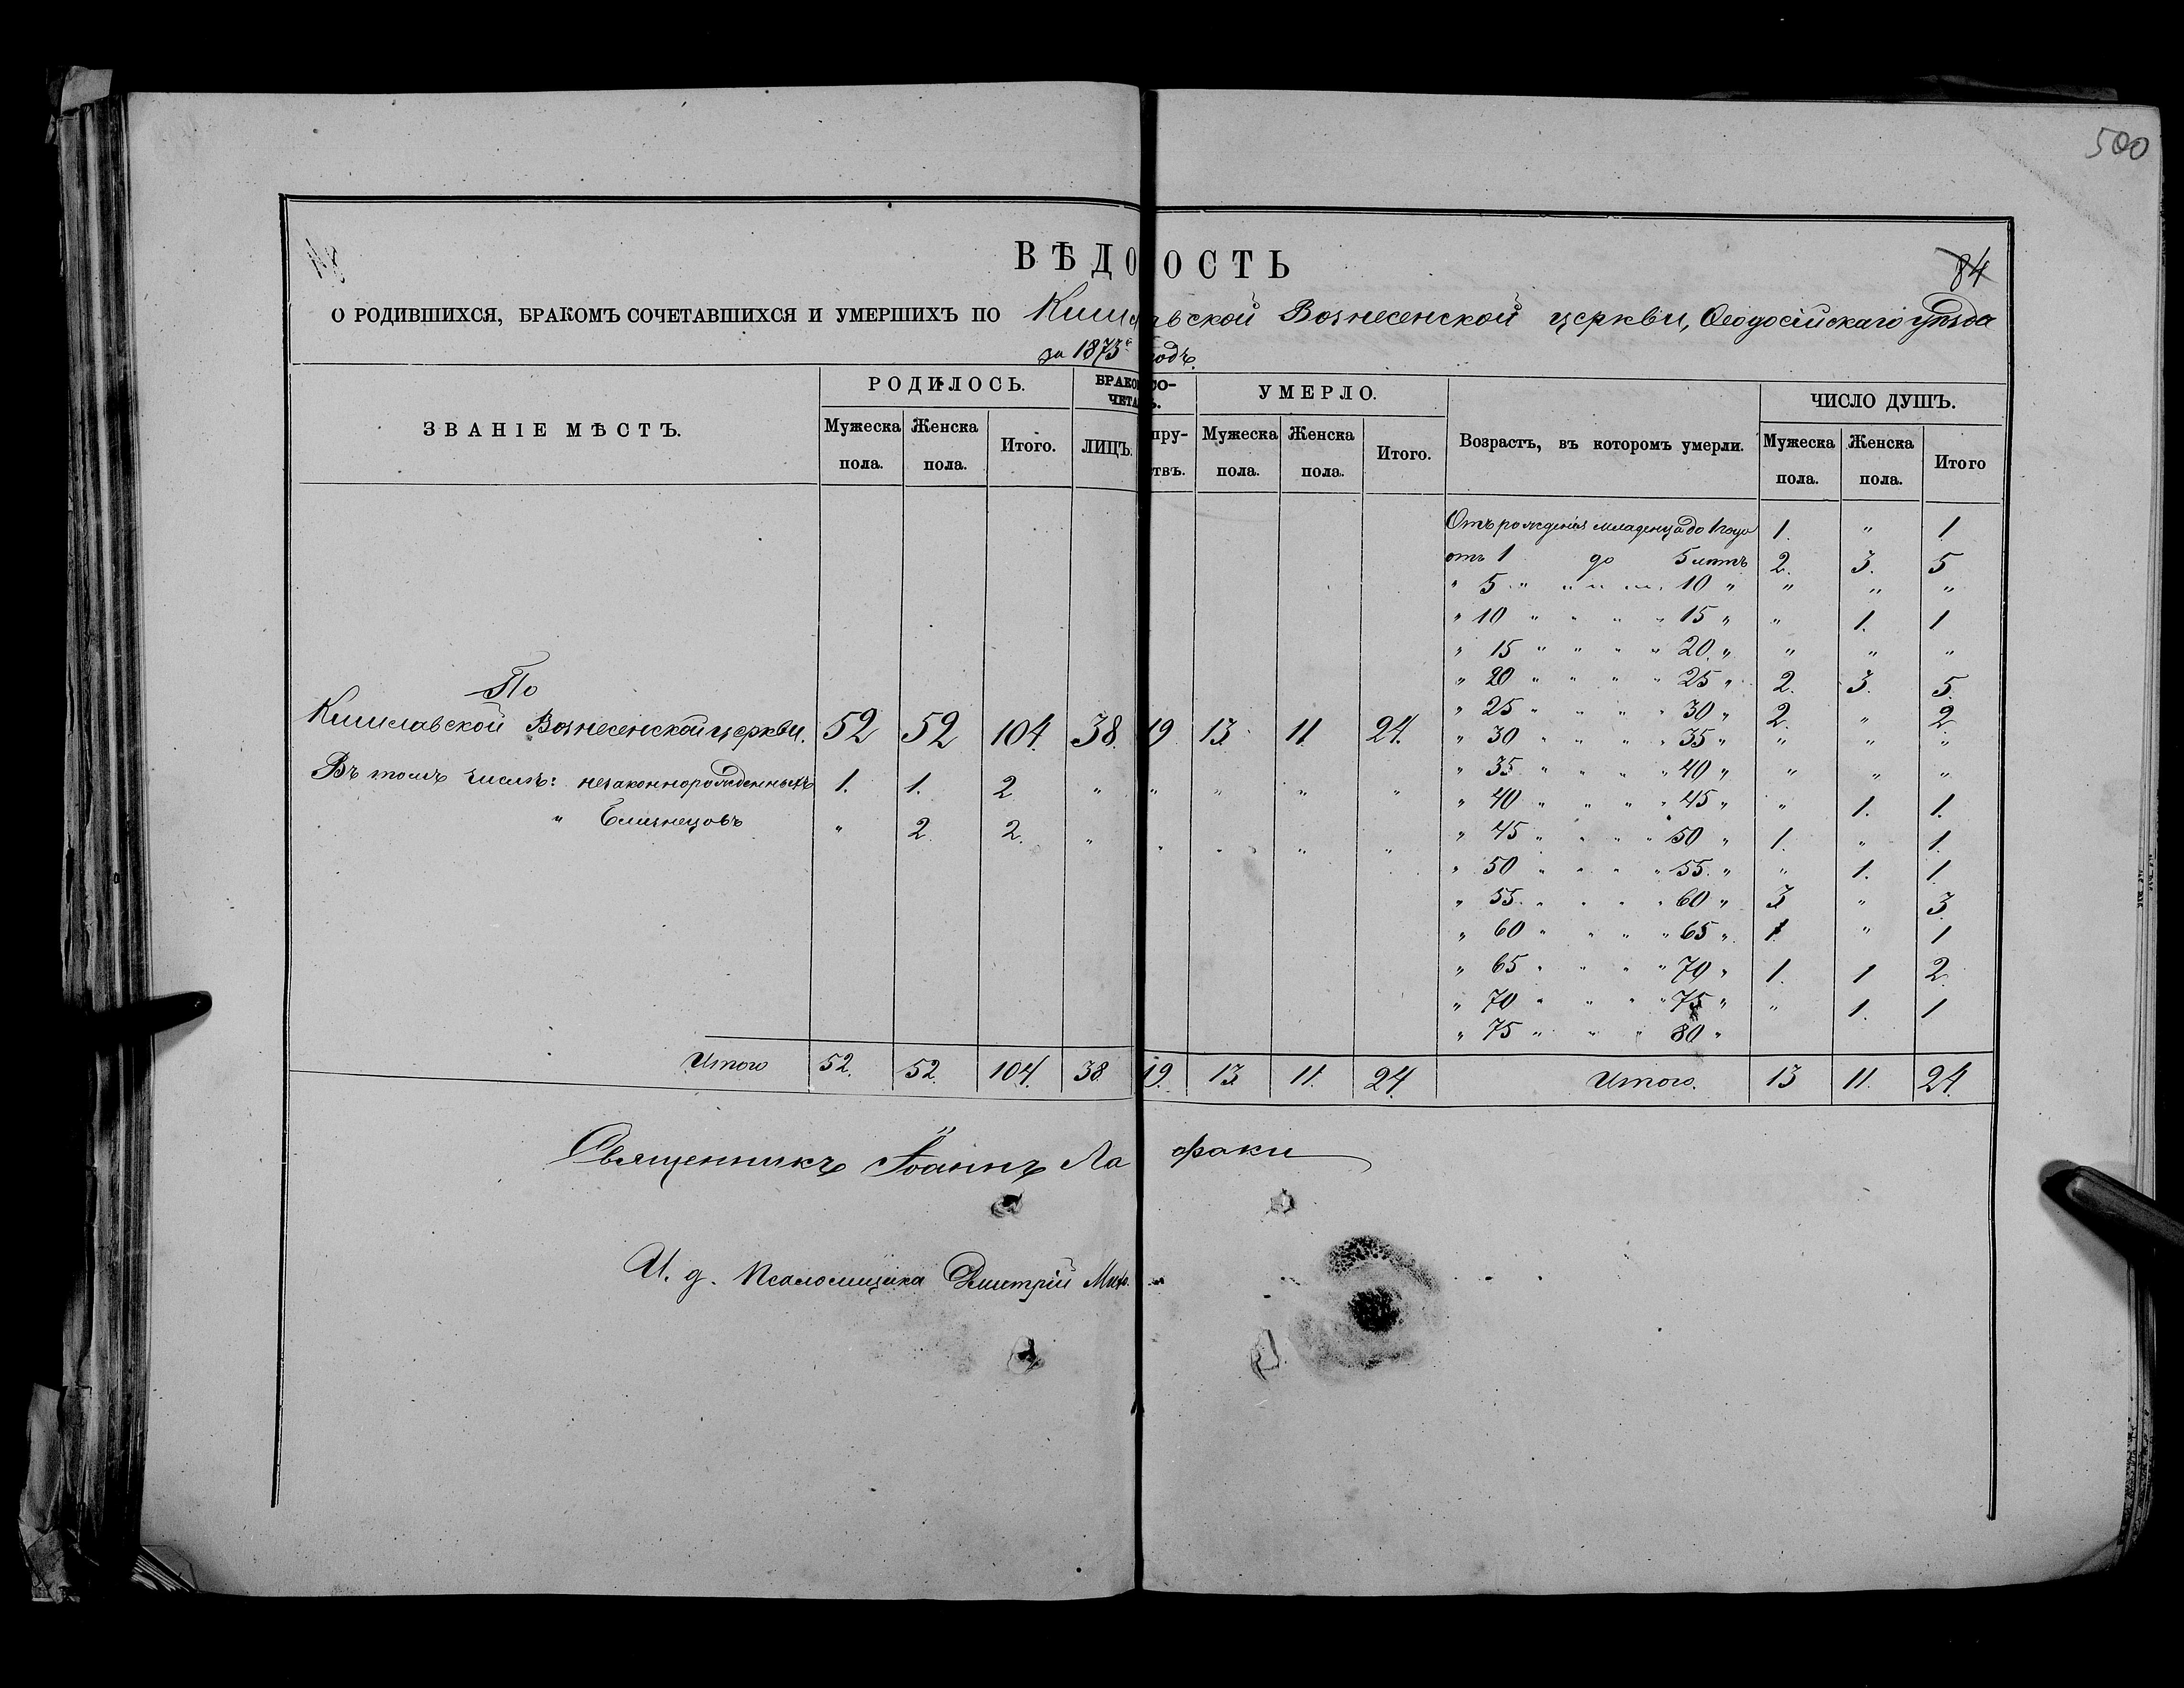 500
84
ВѢДО ОСТЬ
О РОДИВШИХСЯ, БРАКОМЪ СОЧЕТАВШИХСЯ И УМЕРШИХЪ ПО Кишлавской Вознесенской церкви, Ѳеодосійскаго уѣзда
за 1873й годъ.
ЗВАНІЕ МѢСТЪ. РОДИЛОСЬ. УМЕРЛО. Возрастъ, въ которомъ умерли. ЧИСЛО ДУШЪ.
Мужеска пола. Женска пола. Итого. ЛИЦЪ. Мужеска пола. Женска пола. Итого. Мужеска пола. Женска пола. Итого
Отъ рожденія младенца до 1 года 1. " 1.
отъ 1 до 5 лѣтъ 2. 3. 5
" 5 " " " " 10 " " " "
" 10 " " " " 15 " " 1. 1
" 15 " " " " 20 " " " "
" 20 " " " " 25 " 2. 3. 5.
" 25 " " " " 30 " 2. " 2.
" 30 " " " " 35 " " " "
" 35 " " " " 40 " " " "
" 40 " " " " 45 " " 1. 1.
" 45 " " " " 50 " 1. " 1.
" 50 " " " " 55 " " 1. 1.
" 55 " " " " 60 " 3 " 3.
" 60 " " " " 65 " 1 " 1
" 65 " " " " 70 " 1. 1 2.
" 70 " " " " 75 " " 1. 1
" 75 " " " 80 "
По
Кишлавской Вознесенской церкви. 52 52 104. 38. 19 13. 11. 24.
Въ томъ числѣ: незаконнорожденныхъ 1. 1. 2 " " " " "
" Близнецовъ " 2. 2. " " " " "
Итого 52. 52. 104. 38. 19. 13 11. 24. Итого. 13 11. 24.
Священникъ Іоаннъ Ла факи
И. д. Псаломщика Дмитрій